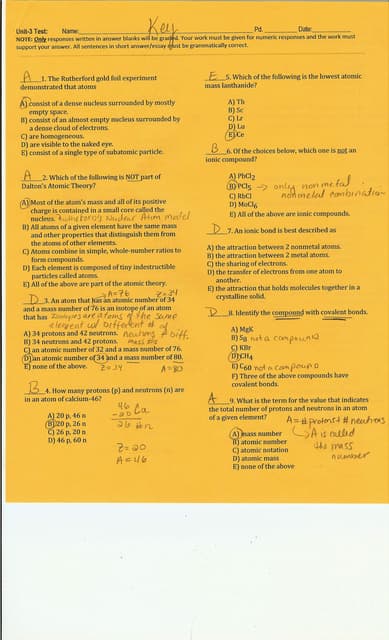 Unit-3 Test: Name: Key Pd. Date:
NOTE: Only responses written in answer blanks will be graded. Your work must be given for numeric responses and the work must
support your answer. All sentences in short answer/essay must be grammatically correct.
A 1. The Rutherford gold foil experiment
demonstrated that atoms
A) consist of a dense nucleus surrounded by mostly
empty space.
B) consist of an almost empty nucleus surrounded by
a dense cloud of electrons.
C) are homogeneous.
D) are visible to the naked eye.
E) consist of a single type of subatomic particle.
A 2. Which of the following is NOT part of
Dalton's Atomic Theory?
A) Most of the atom's mass and all of its positive
charge is contained in a small core called the
nucleus. Rutherford's Nuclear Atom model
B) All atoms of a given element have the same mass
and other properties that distinguish them from
the atoms of other elements.
C) Atoms combine in simple, whole-number ratios to
form compounds.
D) Each element is composed of tiny indestructible
particles called atoms.
E) All of the above are part of the atomic theory.
A=76 Z=34
D 3. An atom that has an atomic number of 34
and a mass number of 76 is an isotope of an atom
that has Isotopes are atoms of the same
element w/ different # of
A) 34 protons and 42 neutrons. neutrons & diff.
B) 34 neutrons and 42 protons. mass #s
C) an atomic number of 32 and a mass number of 76.
D) an atomic number of 34 and a mass number of 80.
E) none of the above. Z=34 A=80
B 4. How many protons (p) and neutrons (n) are
in an atom of calcium-46?
46 Ca
A) 20 p, 46 n -20
B) 20 p, 26 n 26 n
C) 26 p, 20 n
D) 46 p, 60 n Z=20
A=46
E 5. Which of the following is the lowest atomic
mass lanthanide?
A) Th
B) Sc
C) Lr
D) Lu
E) Ce
B 6. Of the choices below, which one is not an
ionic compound?
A) PbCl2
B) PCl5 → only nonmetal
C) RbCl nonmetal combination
D) MoCl6
E) All of the above are ionic compounds.
D 7. An ionic bond is best described as
A) the attraction between 2 nonmetal atoms.
B) the attraction between 2 metal atoms.
C) the sharing of electrons.
D) the transfer of electrons from one atom to
another.
E) the attraction that holds molecules together in a
crystalline solid.
D 8. Identify the compound with covalent bonds.
A) MgK
B) S8 not a compound
C) KBr
D) CH4
E) C60 not a compound
F) Three of the above compounds have
covalent bonds.
A 9. What is the term for the value that indicates
the total number of protons and neutrons in an atom
of a given element? A= # protons + # neutrons
A) mass number A is called
B) atomic number the mass
C) atomic notation number
D) atomic mass
E) none of the above